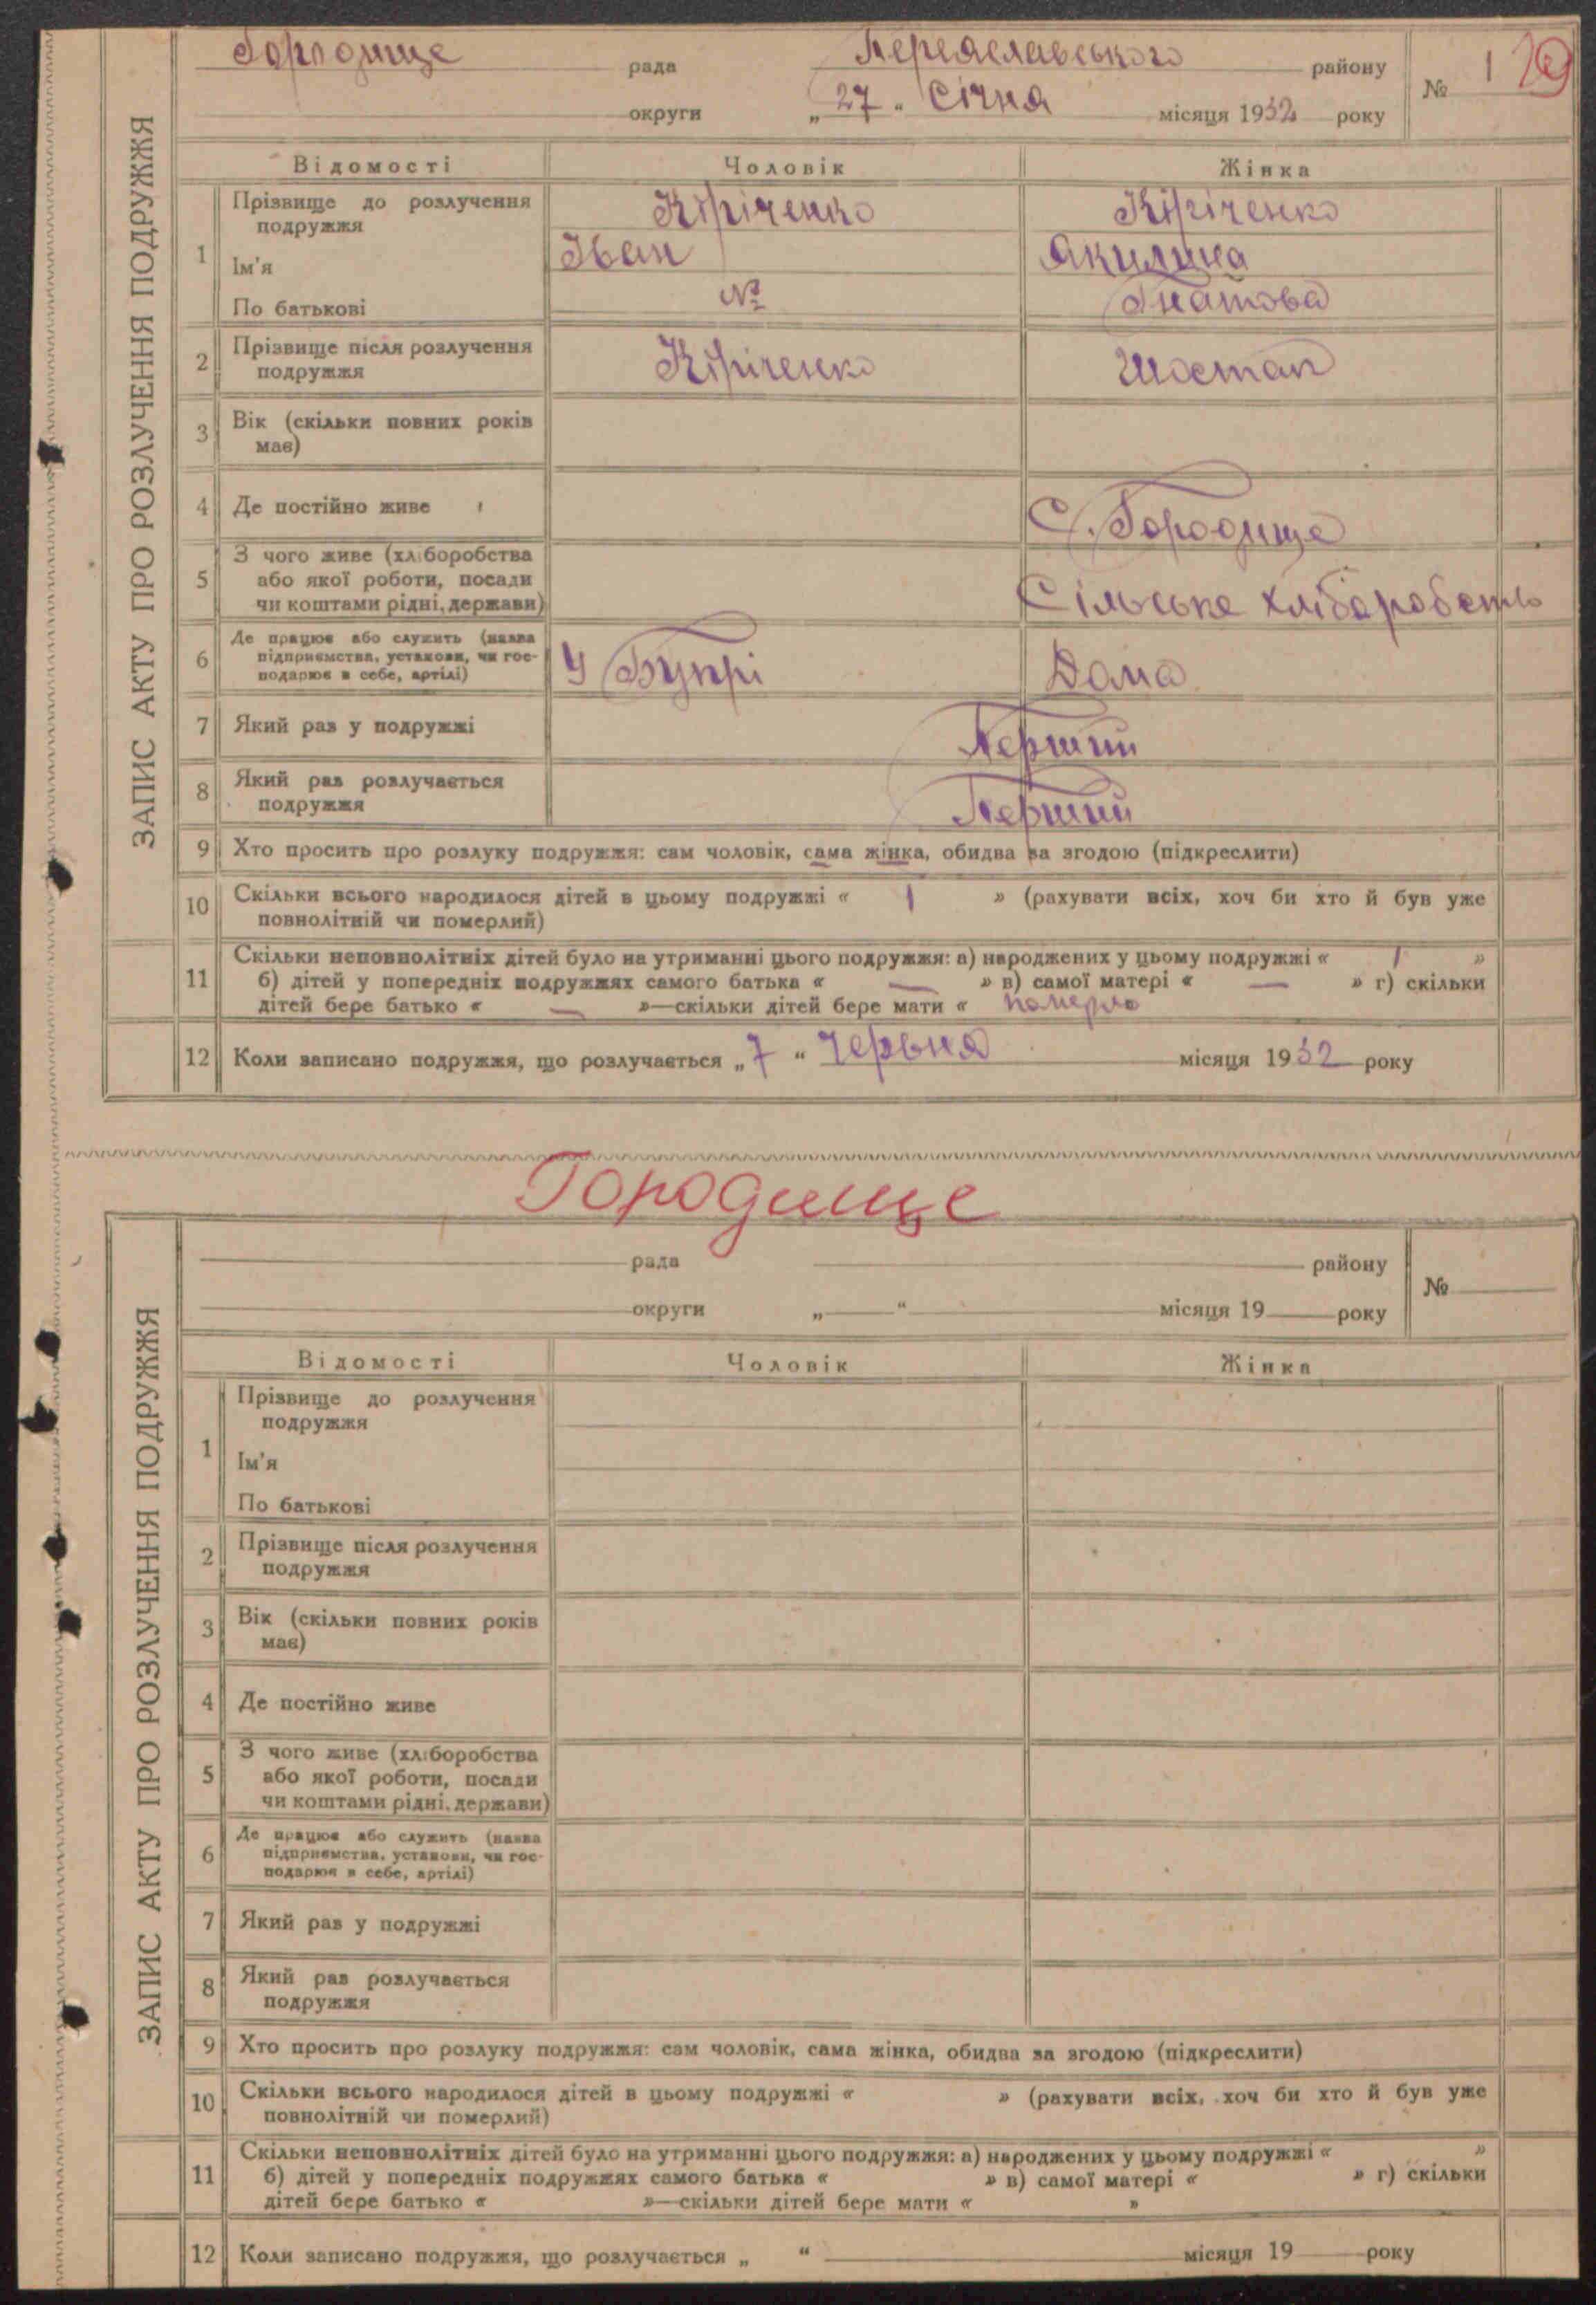 Городище рада Переяславського району № 1
округи „ 27 " Січня місяця 1932 року
ЗАПИС АКТУ ПРО РОЗЛУЧЕННЯ ПОДРУЖЖЯ
Відомості Чоловік Жінка
1 Прізвище до розлучення Кіріченко Кіріченко
подружжя
Ім'я Іван Якилина
По батькові № Гнатова
2 Прізвище після розлучення Кіріченко Шостап
подружжя
3 Вік (скільки повних років
має)
4 Де постійно живе С. Городище
5 З чого живе (хліборобства
або якої роботи, посади Сільське хліборобств
чи коштами рідні, держави)
6 Де працює або служить (назва
підприємства, установи, чи гос- У Бупрі Дома
подарює в себе, артілі)
7 Який раз у подружжі Перший
8 Який раз розлучається Перший
подружжя
9 Хто просить про розлуку подружжя: сам чоловік, сама жінка, обидва за згодою (підкреслити)
10 Скільки всього народилося дітей в цьому подружжі « 1 » (рахувати всіх, хоч би хто й був уже
повнолітній чи померлий)
11 Скільки неповнолітніх дітей було на утриманні цього подружжя: а) народжених у цьому подружжі « 1 »
б) дітей у попередніх подружжях самого батька « — » в) самої матері « — » г) скільки
дітей бере батько « — »—скільки дітей бере мати « померло
12 Коли записано подружжя, що розлучається „ 7 " Червня місяця 1932 року
Городище
рада району №
округи „ " місяця 19 року
ЗАПИС АКТУ ПРО РОЗЛУЧЕННЯ ПОДРУЖЖЯ
Відомості Чоловік Жінка
1 Прізвище до розлучення
подружжя
Ім'я
По батькові
2 Прізвище після розлучення
подружжя
3 Вік (скільки повних років
має)
4 Де постійно живе
5 З чого живе (хліборобства
або якої роботи, посади
чи коштами рідні, держави)
6 Де працює або служить (назва
підприємства, установи, чи гос-
подарює в себе, артілі)
7 Який раз у подружжі
8 Який раз розлучається
подружжя
9 Хто просить про розлуку подружжя: сам чоловік, сама жінка, обидва за згодою (підкреслити)
10 Скільки всього народилося дітей в цьому подружжі « » (рахувати всіх, хоч би хто й був уже
повнолітній чи померлий)
11 Скільки неповнолітніх дітей було на утриманні цього подружжя: а) народжених у цьому подружжі « »
б) дітей у попередніх подружжях самого батька « » в) самої матері « » г) скільки
дітей бере батько « »—скільки дітей бере мати « »
12 Коли записано подружжя, що розлучається „ " місяця 19 року